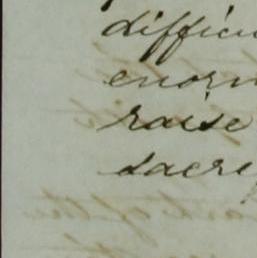 difficu
enorm
raise
sacre